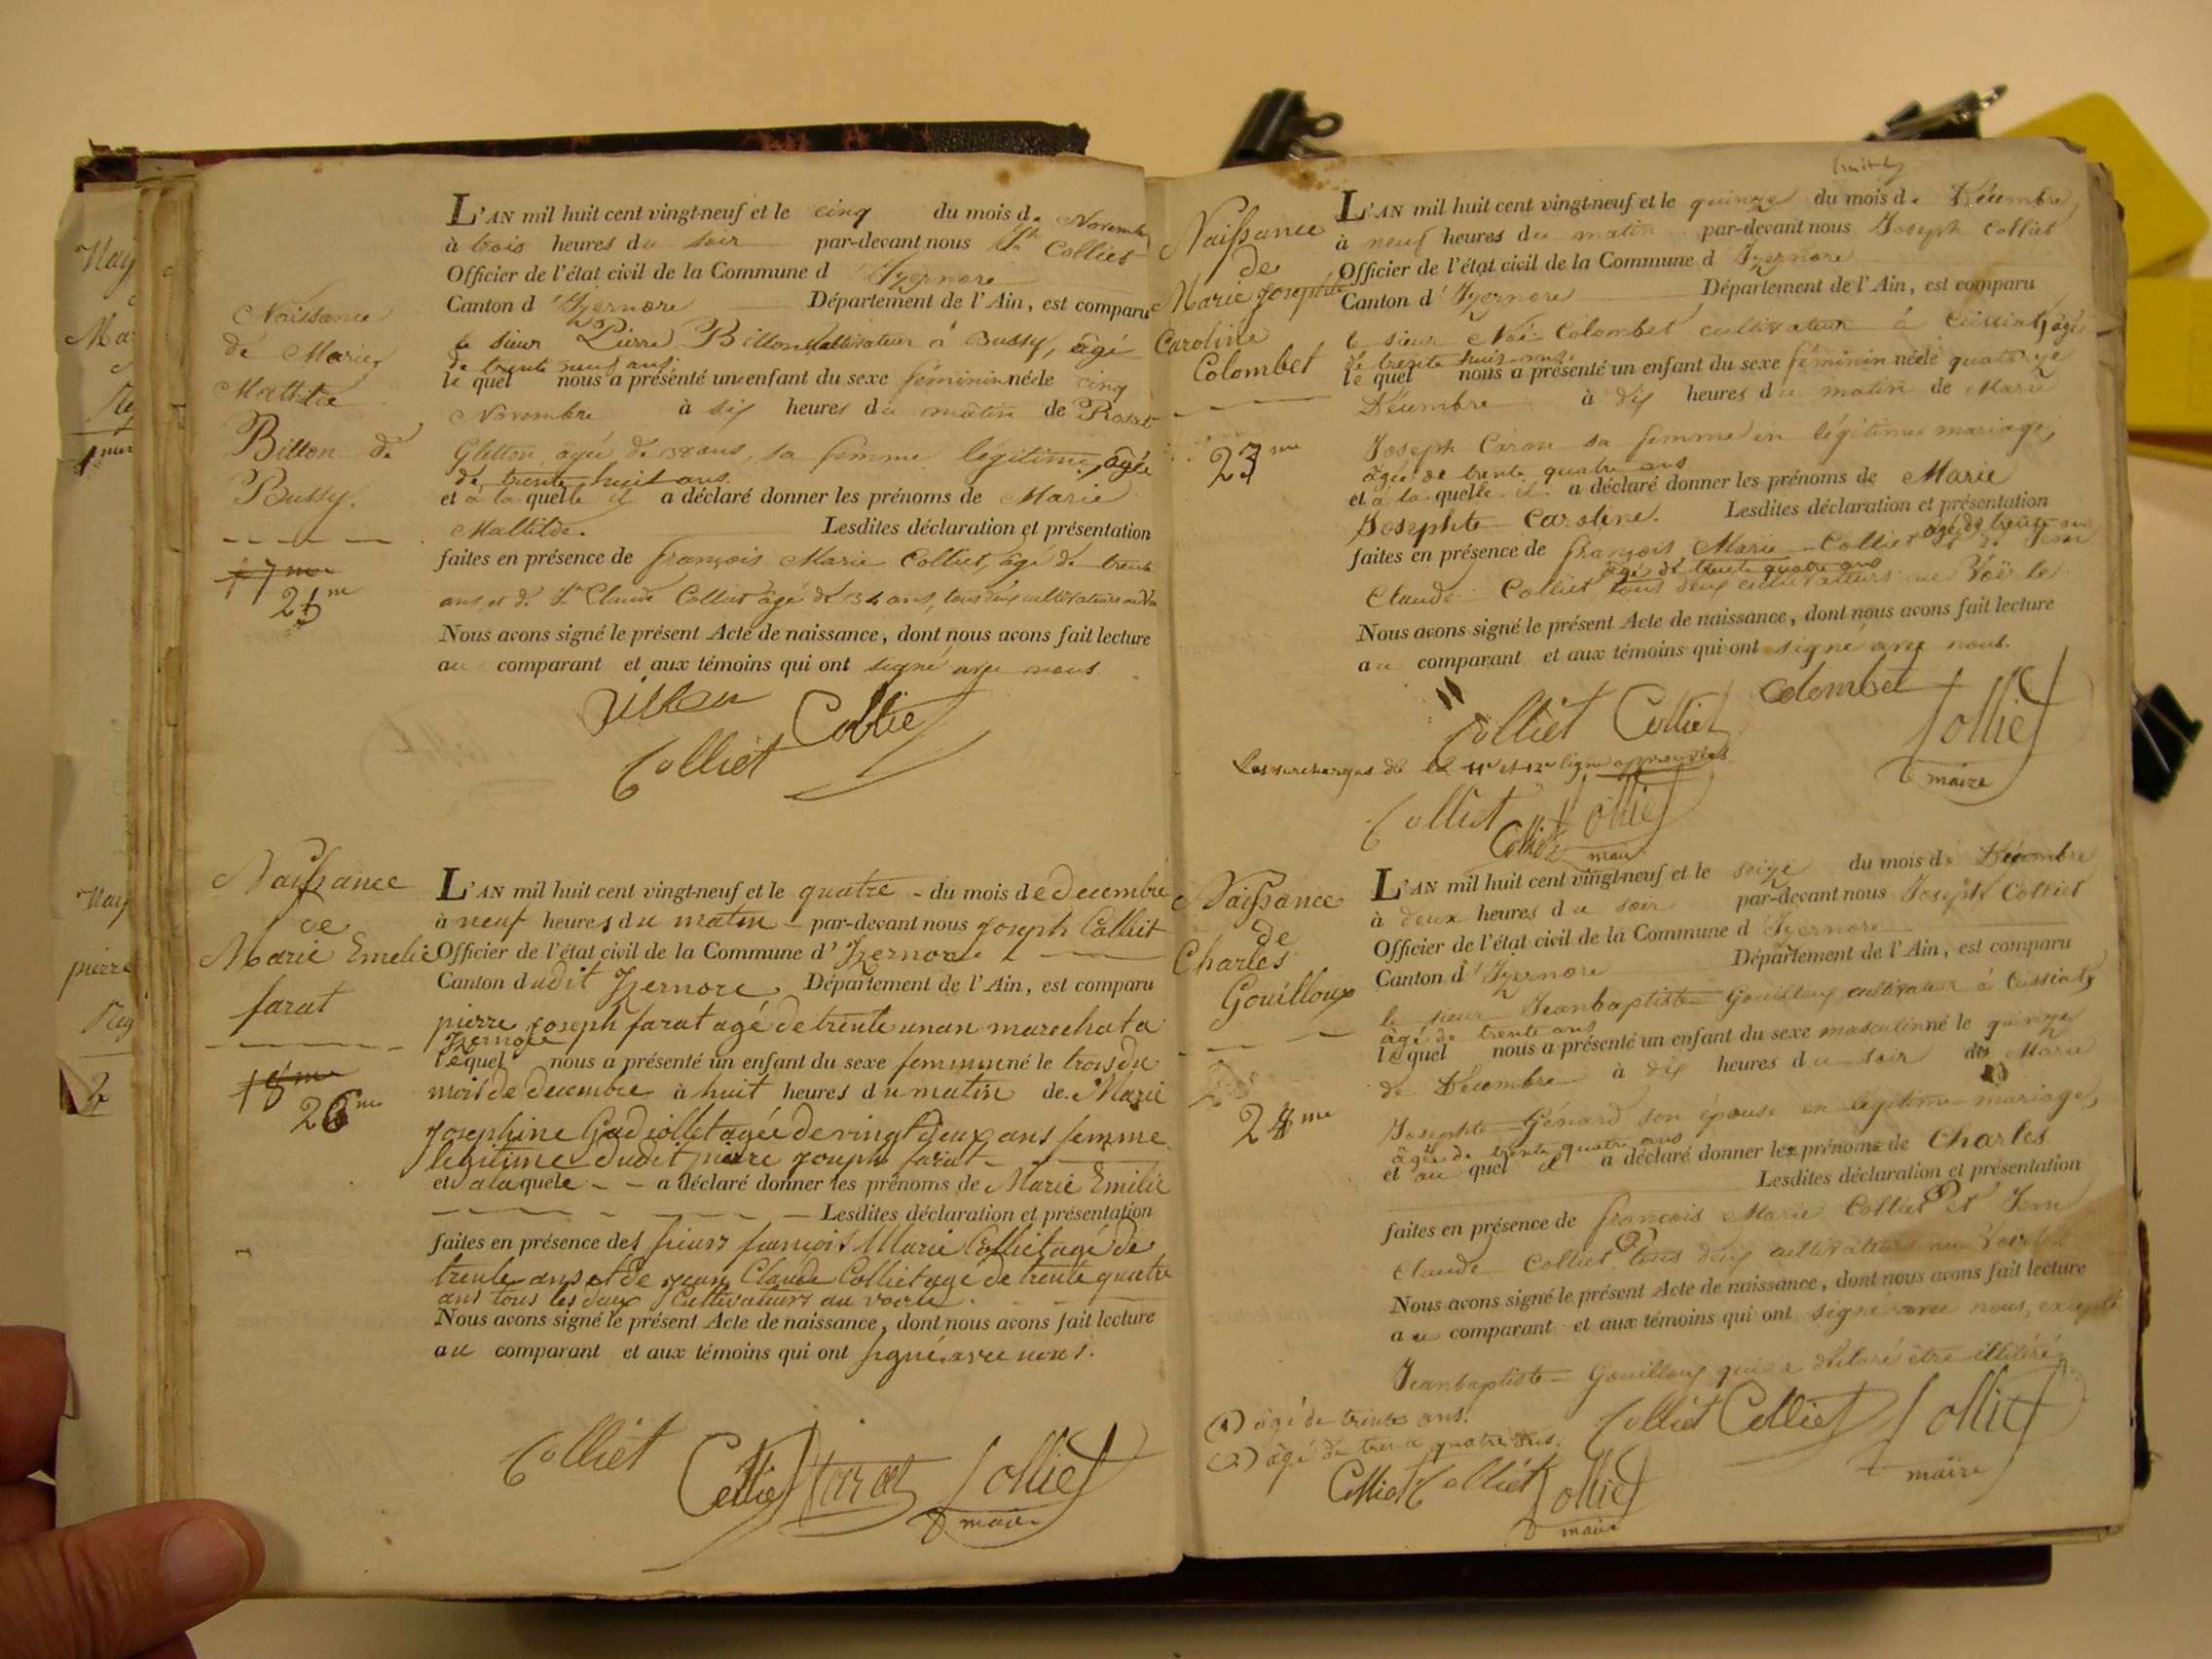 Naissance
de Marie
Mathilde
Billon de
Bussy.
17me
25me
L'AN mil huit cent vingt-neuf et le cinq du mois de Novembre
à trois heures du soir par-devant nous Jh Colliet
Officier de l'état civil de la Commune d'Izernore
Canton d'Izernore Département de l'Ain, est comparu
le sieur Pierre Billon cultivateur à Bussy, âgé
de trente neuf ans
le quel nous a présenté un enfant du sexe féminin née le cinq
Novembre à six heures du mâtin de
Gletton agée de ans, sa femme légitime, âgée
de trente huit ans
et à la quelle il a déclaré donner les prénoms de Marie
Maltilde. Lesdites déclaration et présentation
faites en présence de françois Marie Colliet, âgé de trente
ans, et de Jn Claude Colliet âgé de 34 ans, tous deux cultivateurs au
Nous avons signé le présent Acte de naissance, dont nous avons fait lecture
au comparant et aux témoins qui ont signé avec nous.
Billon Colliet
Colliet
Naissance
de
Marie Emelie
farat
18me
26me
L'AN mil huit cent vingt-neuf et le quatre - du mois de decembre
à neuf heures du matin - par-devant nous Joseph Colliet
Officier de l'état civil de la Commune d'Izernore
Canton dudit Izernore, Département de l'Ain, est comparu
pierre joseph farat agé de trente un an marechal a
Izernore
lequel nous a présenté un enfant du sexe feminin né le trois du
mois de decembre à huit heures du matin de Marie
Josephine Gadiollet agée de vingt deux ans femme
legitime dudit pierre joseph farat -
et a laquele - - a déclaré donner les prénoms de Marie Emilie
Lesdites déclaration et présentation
faites en présence des sieurs francois Marie Colliet agé de
trente ans et de jean Claude Colliet agé de trente quatre
ans tous les deux Cultivateurs au voerle
Nous avons signé le présent Acte de naissance, dont nous avons fait lecture
au comparant et aux témoins qui ont signé avec nous.
Colliet Colliet farat Colliet
maire
Naissance
de
Marie Josephte
Caroline
Colombet
27me
L'AN mil huit cent vingt-neuf et le quinze du mois de Décembre,
à neuf heures du matin par-devant nous Joseph Colliet
Officier de l'état civil de la Commune d'Izernore
Canton d'Izernore Département de l'Ain, est comparu
le sieur Noë Colombet cultivateur à Ceissiat, âgé
de trente huit ans,
le quel nous a présenté un enfant du sexe féminin née le quatorze
Décembre à dix heures du matin de Marie
Joseph Caron sa femme en légitime mariage,
âgée de trente quatre ans
et à la quelle il a déclaré donner les prénoms de Marie
Josephte Caroline. Lesdites déclaration et présentation
faites en présence de françois Marie Colliet âgé de trente ans et de Jean
âgé de trente quatre ans
Claude Colliet tous deux cultivateurs au Voërle
Nous avons signé le présent Acte de naissance, dont nous avons fait lecture
au comparant et aux témoins qui ont signé avec nous.
Colliet Colliet Colombet Colliet
maire
Les surcharges de la 11e et 12e ligne approuvées
Colliet Colliet
Colliet maire
Naissance
de
Charles
Gouilloux
28me
L'AN mil huit cent vingt-neuf et le seize du mois de Décembre
à deux heures du soir par-devant nous Joseph Colliet
Officier de l'état civil de la Commune d'Izernore
Canton d'Izernore Département de l'Ain, est comparu
le sieur Jeanbaptiste Gouilloux cultivateur à Ceissiat,
âgé de trente ans
le quel nous a présenté un enfant du sexe masculin né le quinze
de Décembre à dix heures du soir de Marie
Josephte Génard son épouse en légitime mariage,
âgée de trente quatre ans
et au quel il a déclaré donner les prénoms de Charles
Lesdites déclaration et présentation
faites en présence de françois Marie Colliet (1) et Jean
Claude Colliet (2) tous deux cultivateurs au Voërle
Nous avons signé le présent Acte de naissance, dont nous avons fait lecture
au comparant et aux témoins qui ont signé avec nous, excepté
Jeanbaptiste Gouilloux qui a déclaré être illitéré.
(1) âgé de trente ans.
(2) âgé de trente quatre ans.
Colliet Colliet Colliet
maire
Colliet Colliet Colliet
maire